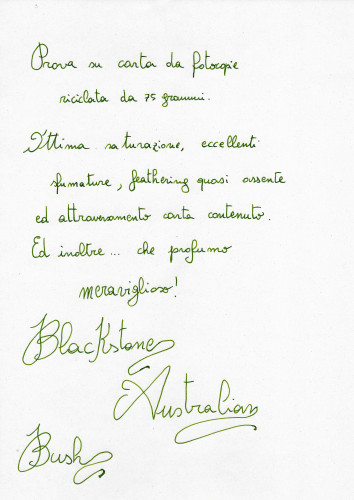 Prova su carta da fotocopie
riciclata da 75 grammi.
Ottima saturazione, eccellenti
sfumature, feathering quasi assente
ed attraversamento carta contenuto.
Ed inoltre... che profumo
meraviglioso!
Blackstone
Australian
Bush